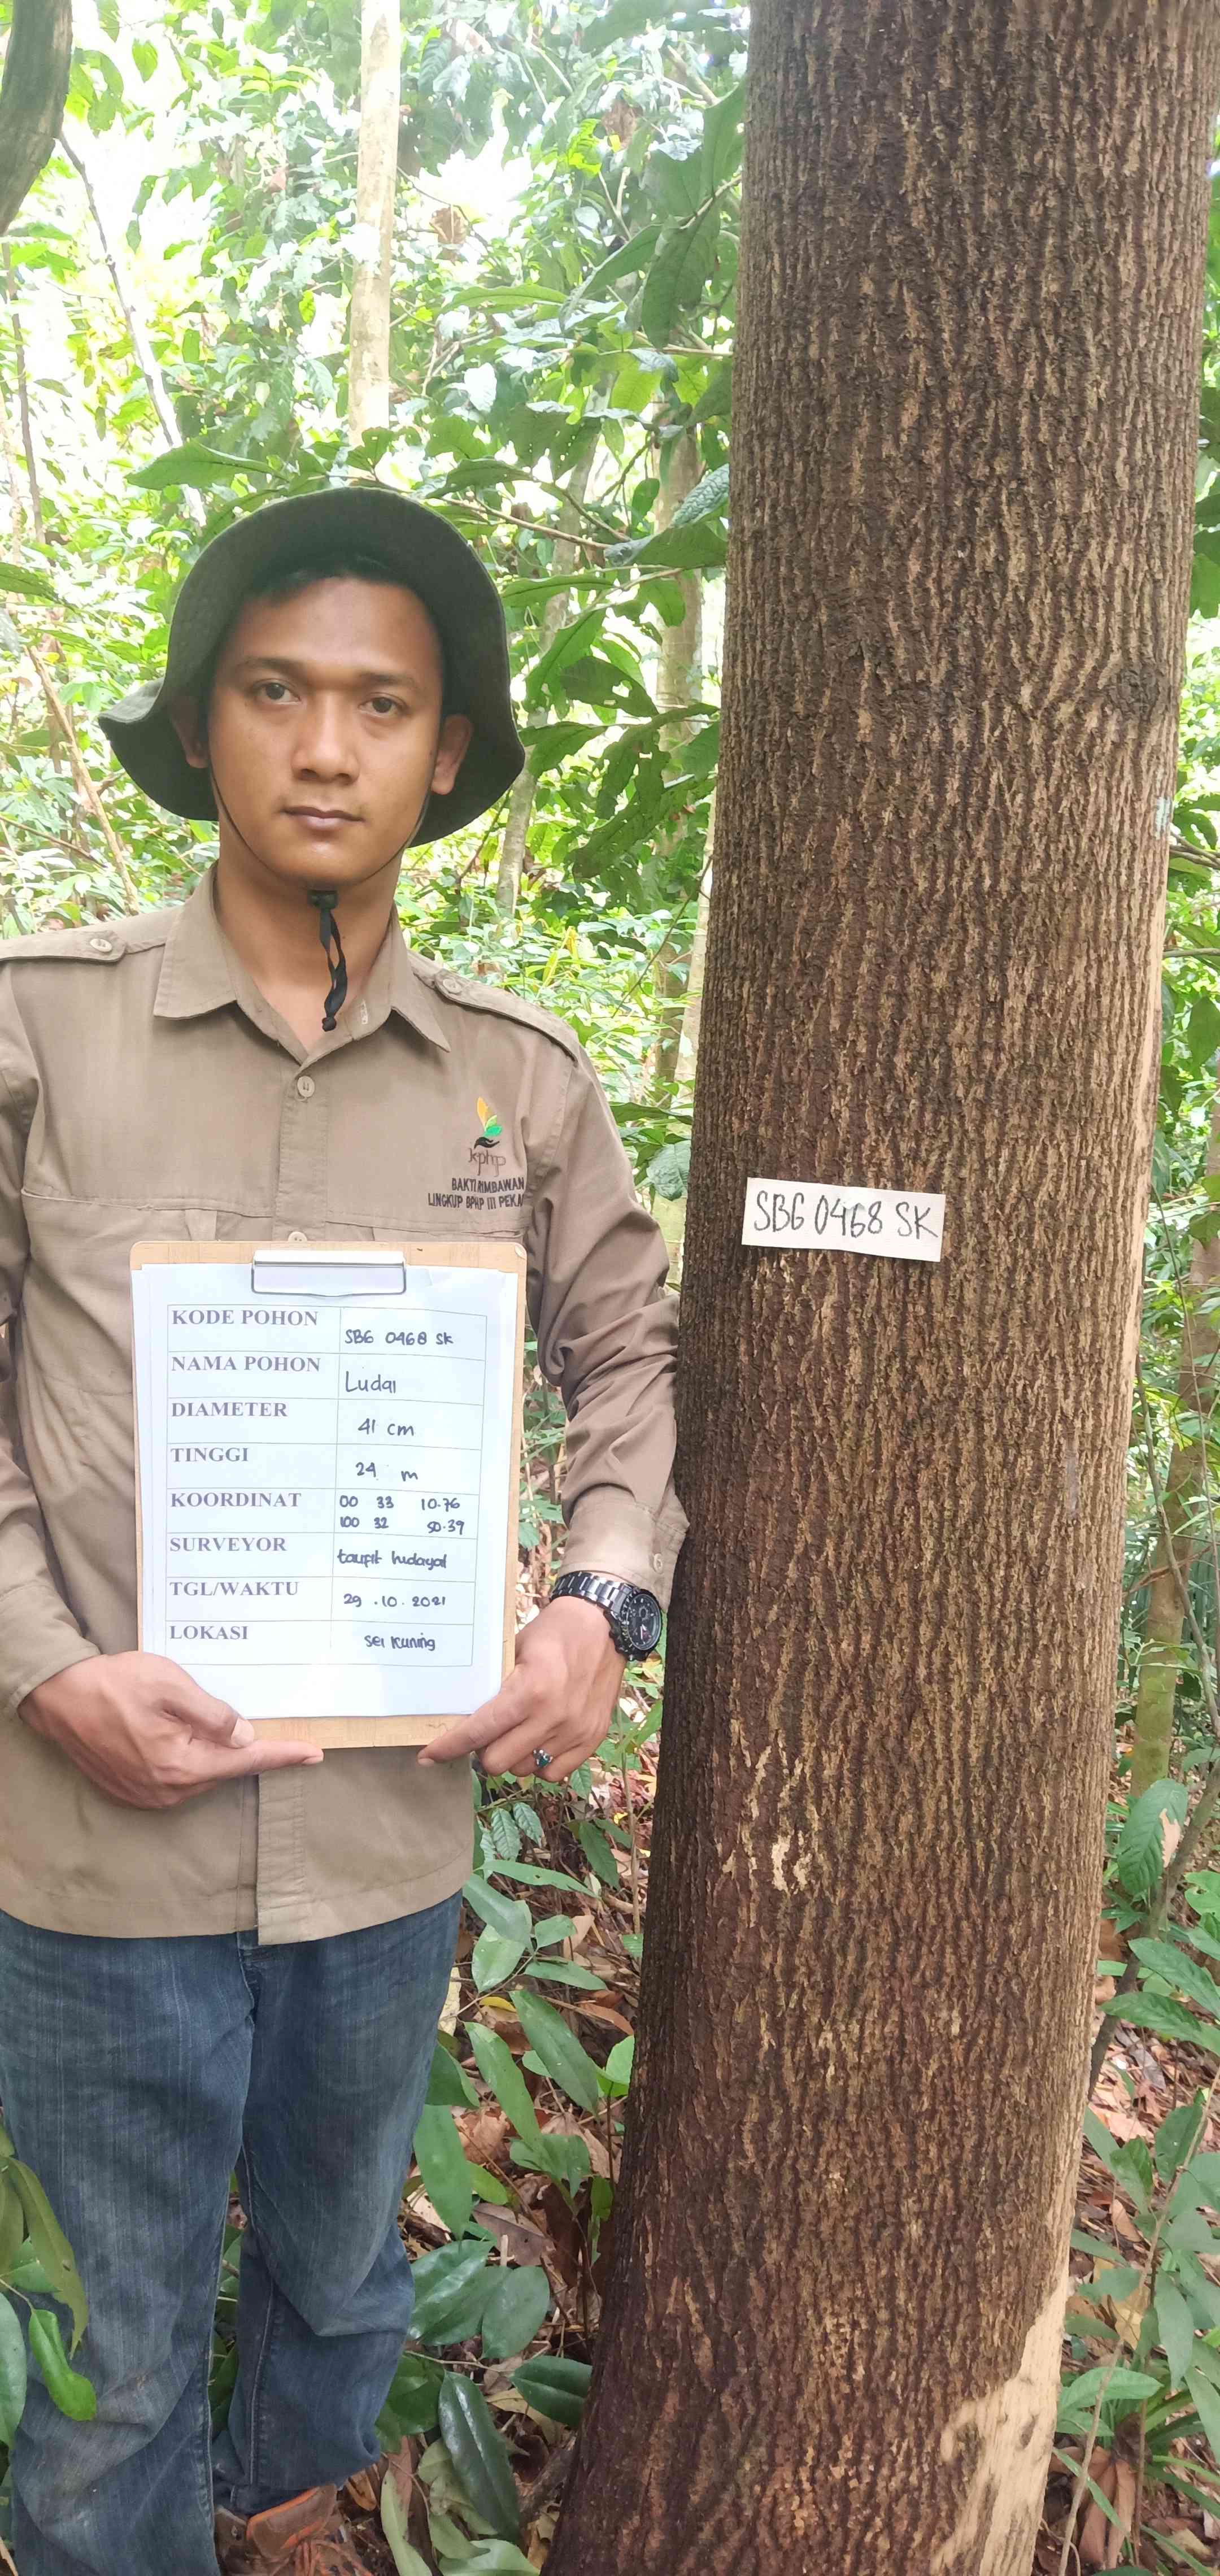 kphp
BAKTI RIMBAWAN
LINGKUP BPHP III PEKA
SBG 0468 SK
KODE POHON SBG 0468 SK
NAMA POHON Ludai
DIAMETER 41 cm
TINGGI 24 m
KOORDINAT 00 33 10.76
100 32 50.39
SURVEYOR taupik hidayat
TGL/WAKTU 29.10.2021
LOKASI sei Kuning